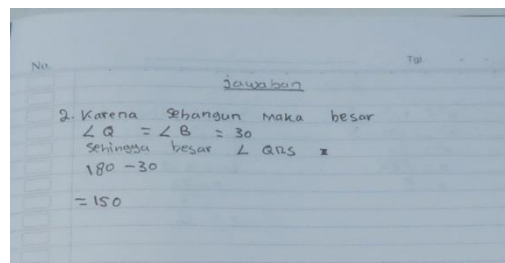 No.
Tgl.
jawaban
2. Karena sebangun maka besar
∠Q = ∠B = 30
sehingga besar ∠ QRS =
180 - 30
= 150